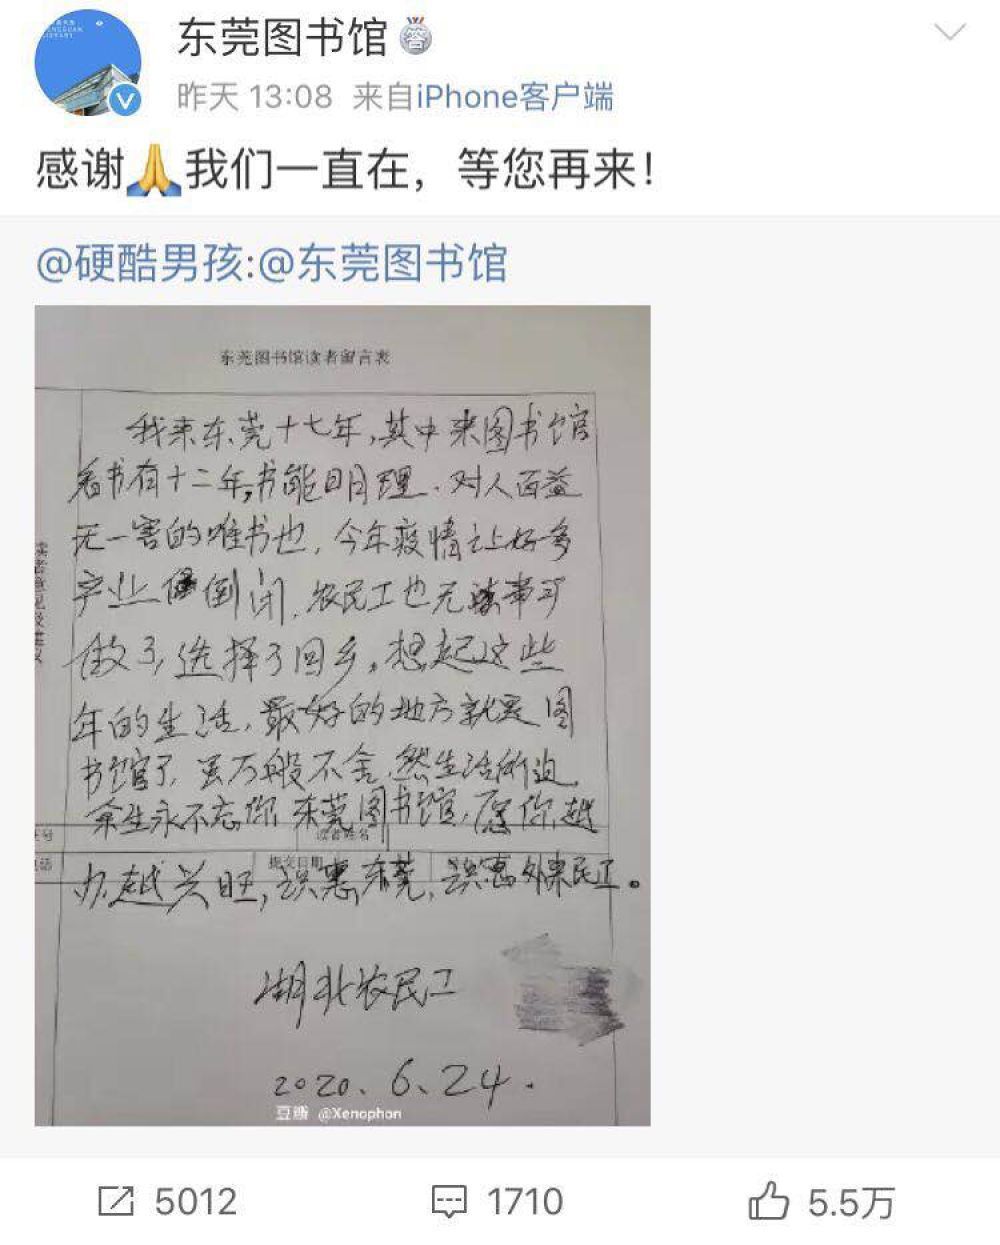 东莞图书馆
昨天 13:08 来自iPhone客户端
感谢🙏我们一直在，等您再来！
@硬酷男孩:@东莞图书馆
东莞图书馆读者留言表
我来东莞十七年，其中来图书馆
看书有十二年，书能明理、对人百益
无一害的唯书也，今年疫情让好多
产业倒闭，农民工也无事可
做了，选择了回乡。想起这些
年的生活，最好的地方就是图
书馆了，虽万般不舍，然生活所迫，
余生永不忘你，东莞图书馆，愿你越
办越兴旺，识惠东莞，识惠外来民工。
提交日期
湖北农民工
2020.6.24.
豆瓣 @Xenophon
5012 1710 5.5万